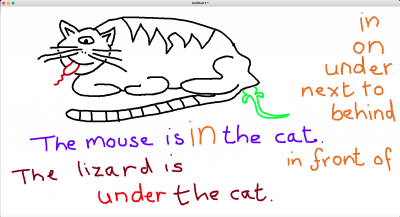 in
on
under
next to
behind
The mouse is in the cat.
in front of
The lizard is
under the cat.